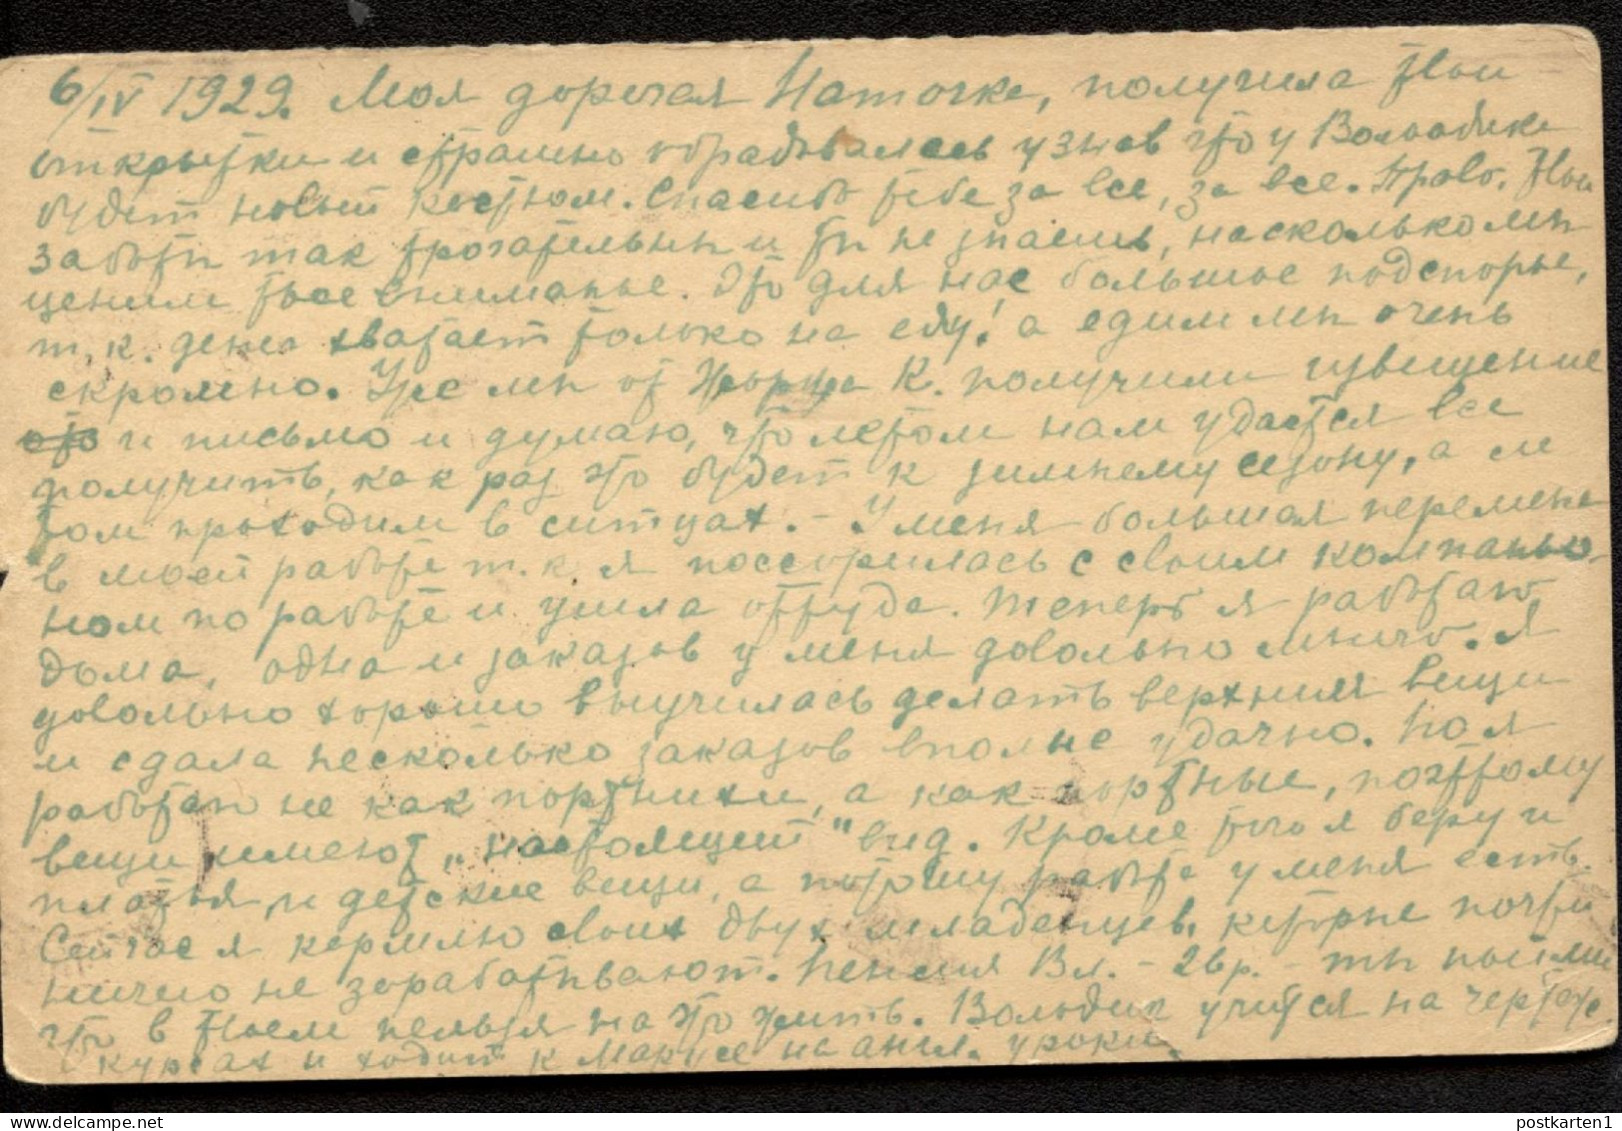 6/IV 1929. Моя дорогая Наточка, получила твои
открытки и страшно обрадовалась узнав что у Володьки
будет новый костюм. Спасибо тебе за все, за все. Право, твои
заботы так трогательны и ты не знаешь, насколько мы
ценим твое вниманье. Это для нас большое подспорье,
т.к. денег хватает только на еду! а едим мы очень
скромно. Уже мы от Жоржа К. получили извещение
и письмо и думаю, что летом нам удастся все
получить, как раз это будет к зимнему сезону, а ле
том проходим в ситцах. - У меня большая перемена
в моей работе т.к. я поссорилась с своим компаньо
ном по работе и ушла оттуда. Теперь я работаю
дома, одна и заказов у меня довольно много. Я
довольно хорошо выучилась делать верхния вещи
и сдала несколько заказов вполне удачно. Но я
работаю не как портнихи, а как портные, поэтому
вещи имеют „настоящий" вид. Кроме того я беру и
платья, и детские вещи, а потому работа у меня есть.
Сейчас я кормлю своих двух младенцев, которые почти
ничего не зарабатывают. Пенсия Вл. - 26 р. - ты пойми
что нельзя на это жить. Володик учится на чертеж.
курсах и ходит к Марусе на англ. уроки.
postkarten1